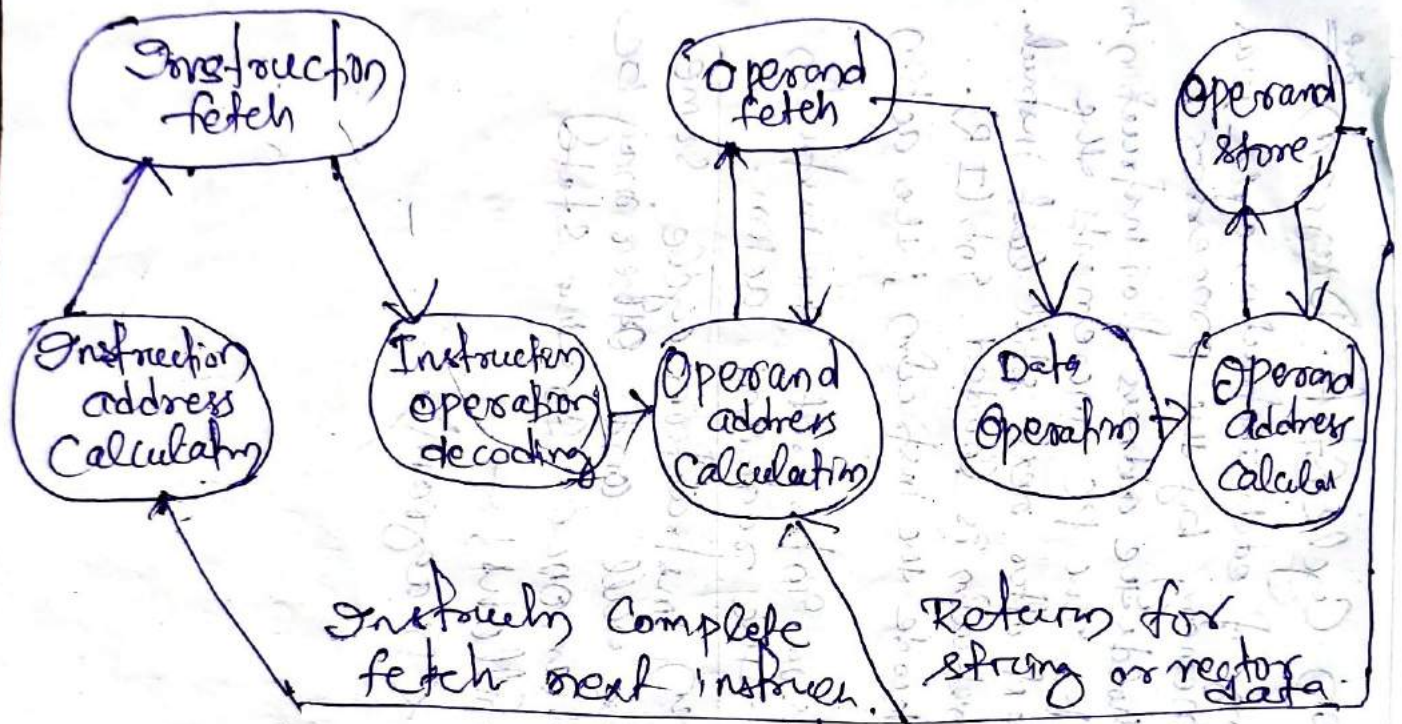 Instruction
fetch
Operand
fetch
Operand
store
Instruction
address
Calculatn
Instructn
operation
decoding
Operand
address
Calculation
Data
Operatn
Operand
address
Calcula
Instructn Complete
fetch next instrucn.
Return for
string or vector
data